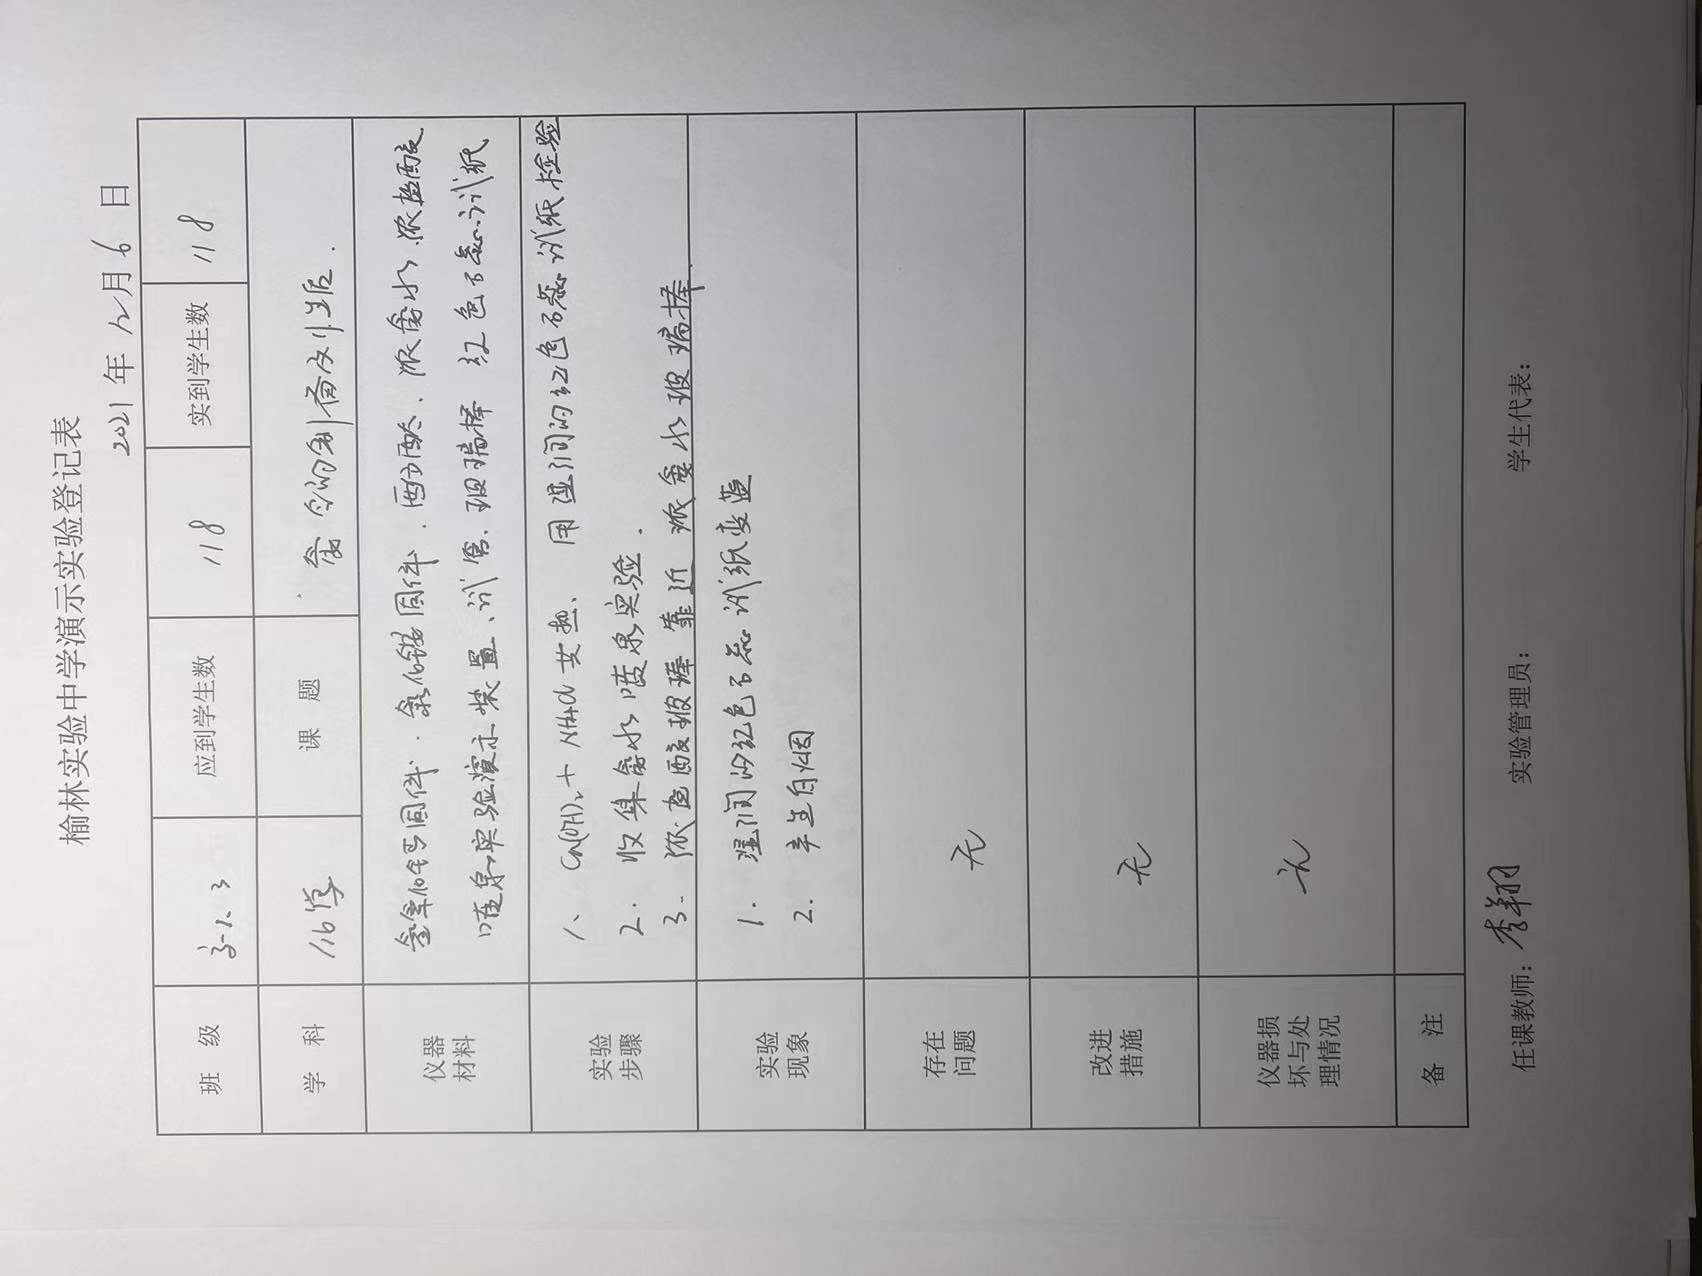 榆林实验中学演示实验登记表
2021年12月6日
班 级 高一.3 应到学生数 118 实到学生数 118
学 科 化学 课 题 氨的制备及性质.
仪器
材料
氢氧化钙固体.氯化铵固体.酚酞.浓氨水.浓盐酸
喷泉实验演示装置、试管.玻璃棒 红色石蕊试纸
实验
步骤
1、Ca(OH)₂+NH4Cl 共热、用湿润的红色石蕊试纸检验
2. 收集氨水喷泉实验.
3. 浓盐酸玻璃棒靠近浓氨水玻璃棒.
实验
现象
1. 湿润的红色石蕊试纸变蓝
2. 产生白烟
存在
问题
无
改进
措施
无
仪器损
坏与处
理情况
无
备 注
任课教师：李翔 实验管理员： 学生代表：